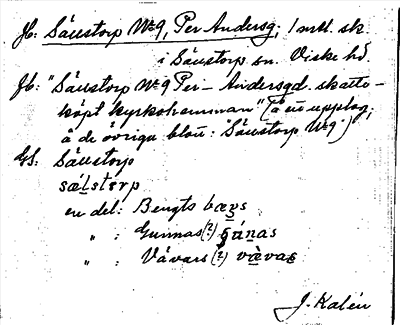 Jb: Säustorp No 9, Per Andersg; 1 mtl. sk
i Säustorp sn. Viske hd.
Jb: "Säustorp No 9 Per-Andersgd. skatte-
köpt kyrkohemman" (å en upplag;
å de övriga blott: "Säustorp No 9")
GS: Säustorp
sälsterp
en del: Bengts
" : Gunnas (?) gúnas
" : Vävars (?) vàvas
J. Kalén